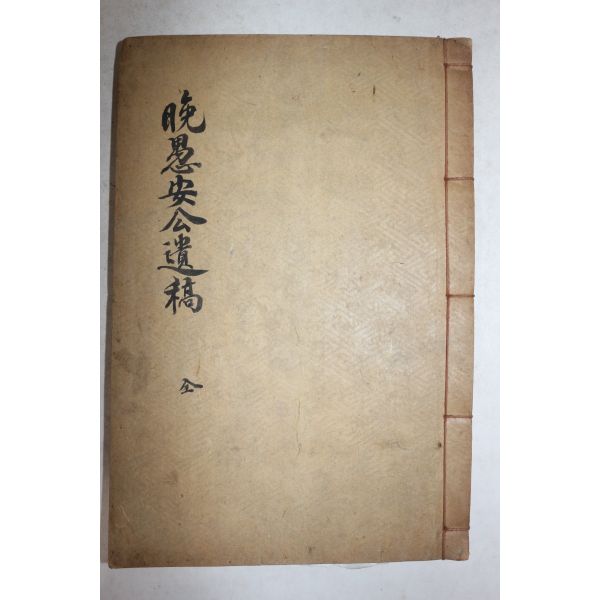 晚愚安公遺稿
全